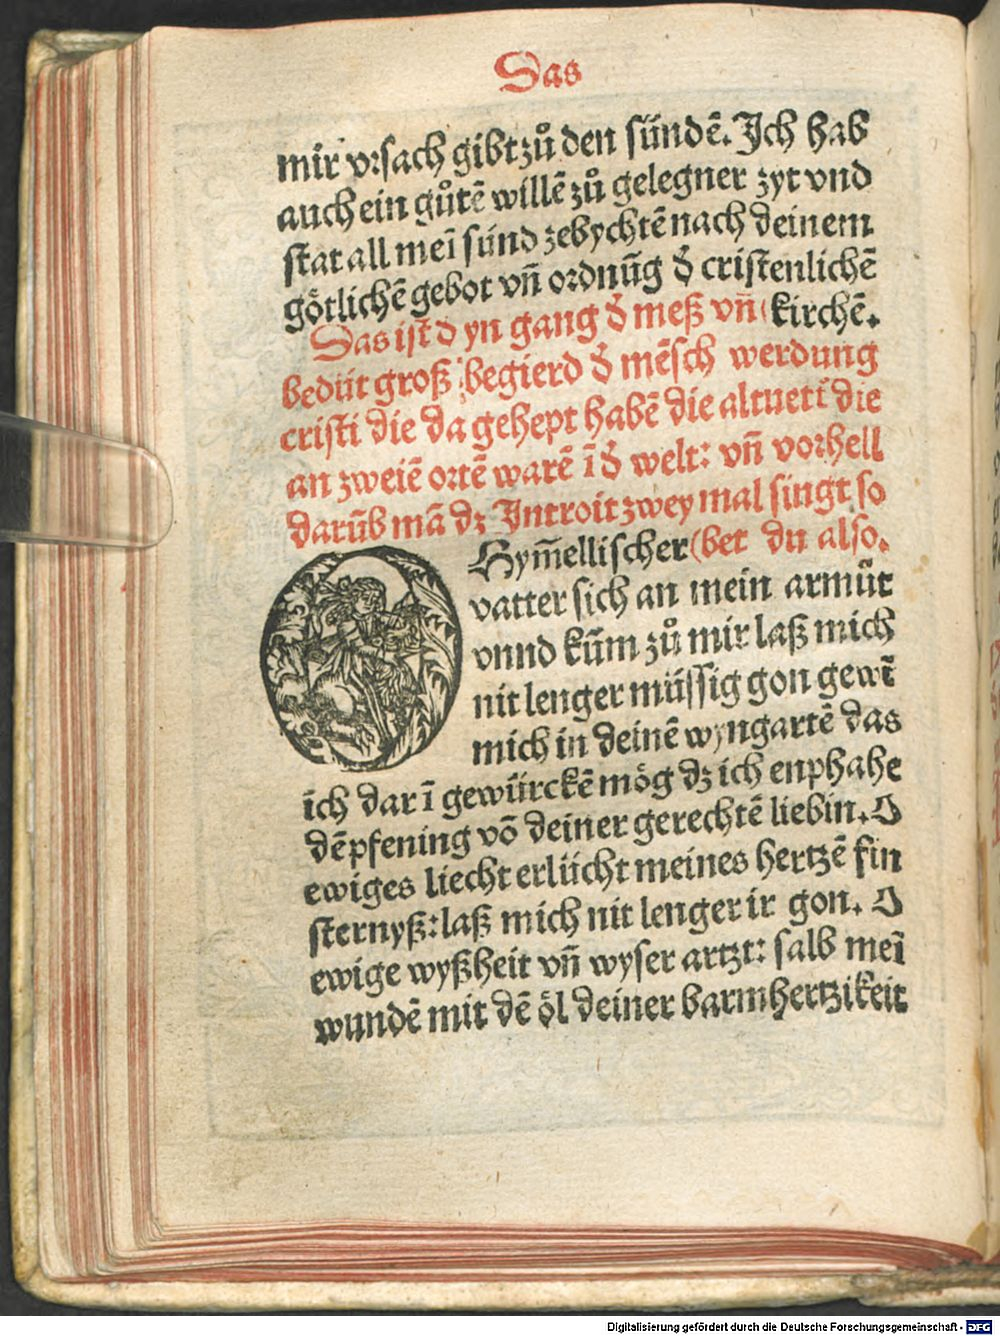 Das
mir vrsach gibt zuͦ den sündē. Ich hab
auch ein guͦtē willē zuͦ gelegner zyt vnd
stat all meī sünd zebychtē nach deinem
götlichē gebot vn̄ ordnūg d̄ cristenlichē
Das ist d yn gang d̄ meß vn̄ (kirchē.
bedüt groß begierd d̄ mēsch werdung
cristi die da gehept habē die altuett̄ die
an zweiē ortē warē ī d̄ welt: vn̄ vorhell
darūb mā dz Introit zwey mal singt so
Hym̄ellischer (bet du also.
O
vatter sich an mein armuͦt
vnnd kum̄ zuͦ mir laß mich
nit lenger müssig gon gewī
mich in deinē wyngartē das
ich dar ī gewürckē mög dz ich enphahe
dē pfening vō deiner gerechtē liebin. O
ewiges liecht erlücht meines hertzē fin
sternyß: laß mich nit lenger ir gon. O
ewige wyßheit vn̄ wyser artzt: salb meī
wundē mit dē öl deiner barmhertzikeit
Digitalisierung gefördert durch die Deutsche Forschungsgemeinschaft - DFG